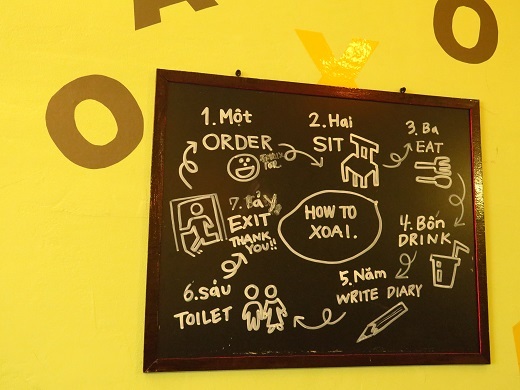 A
O
Y
O
1. Một
ORDER
2. Hai
SIT
3. Ba
EAT
4. Bốn
DRINK
5. Năm
WRITE DIARY
6. sáu
TOILET
7. Bảy
EXIT
THANK
YOU!!
HOW TO
XOAI.